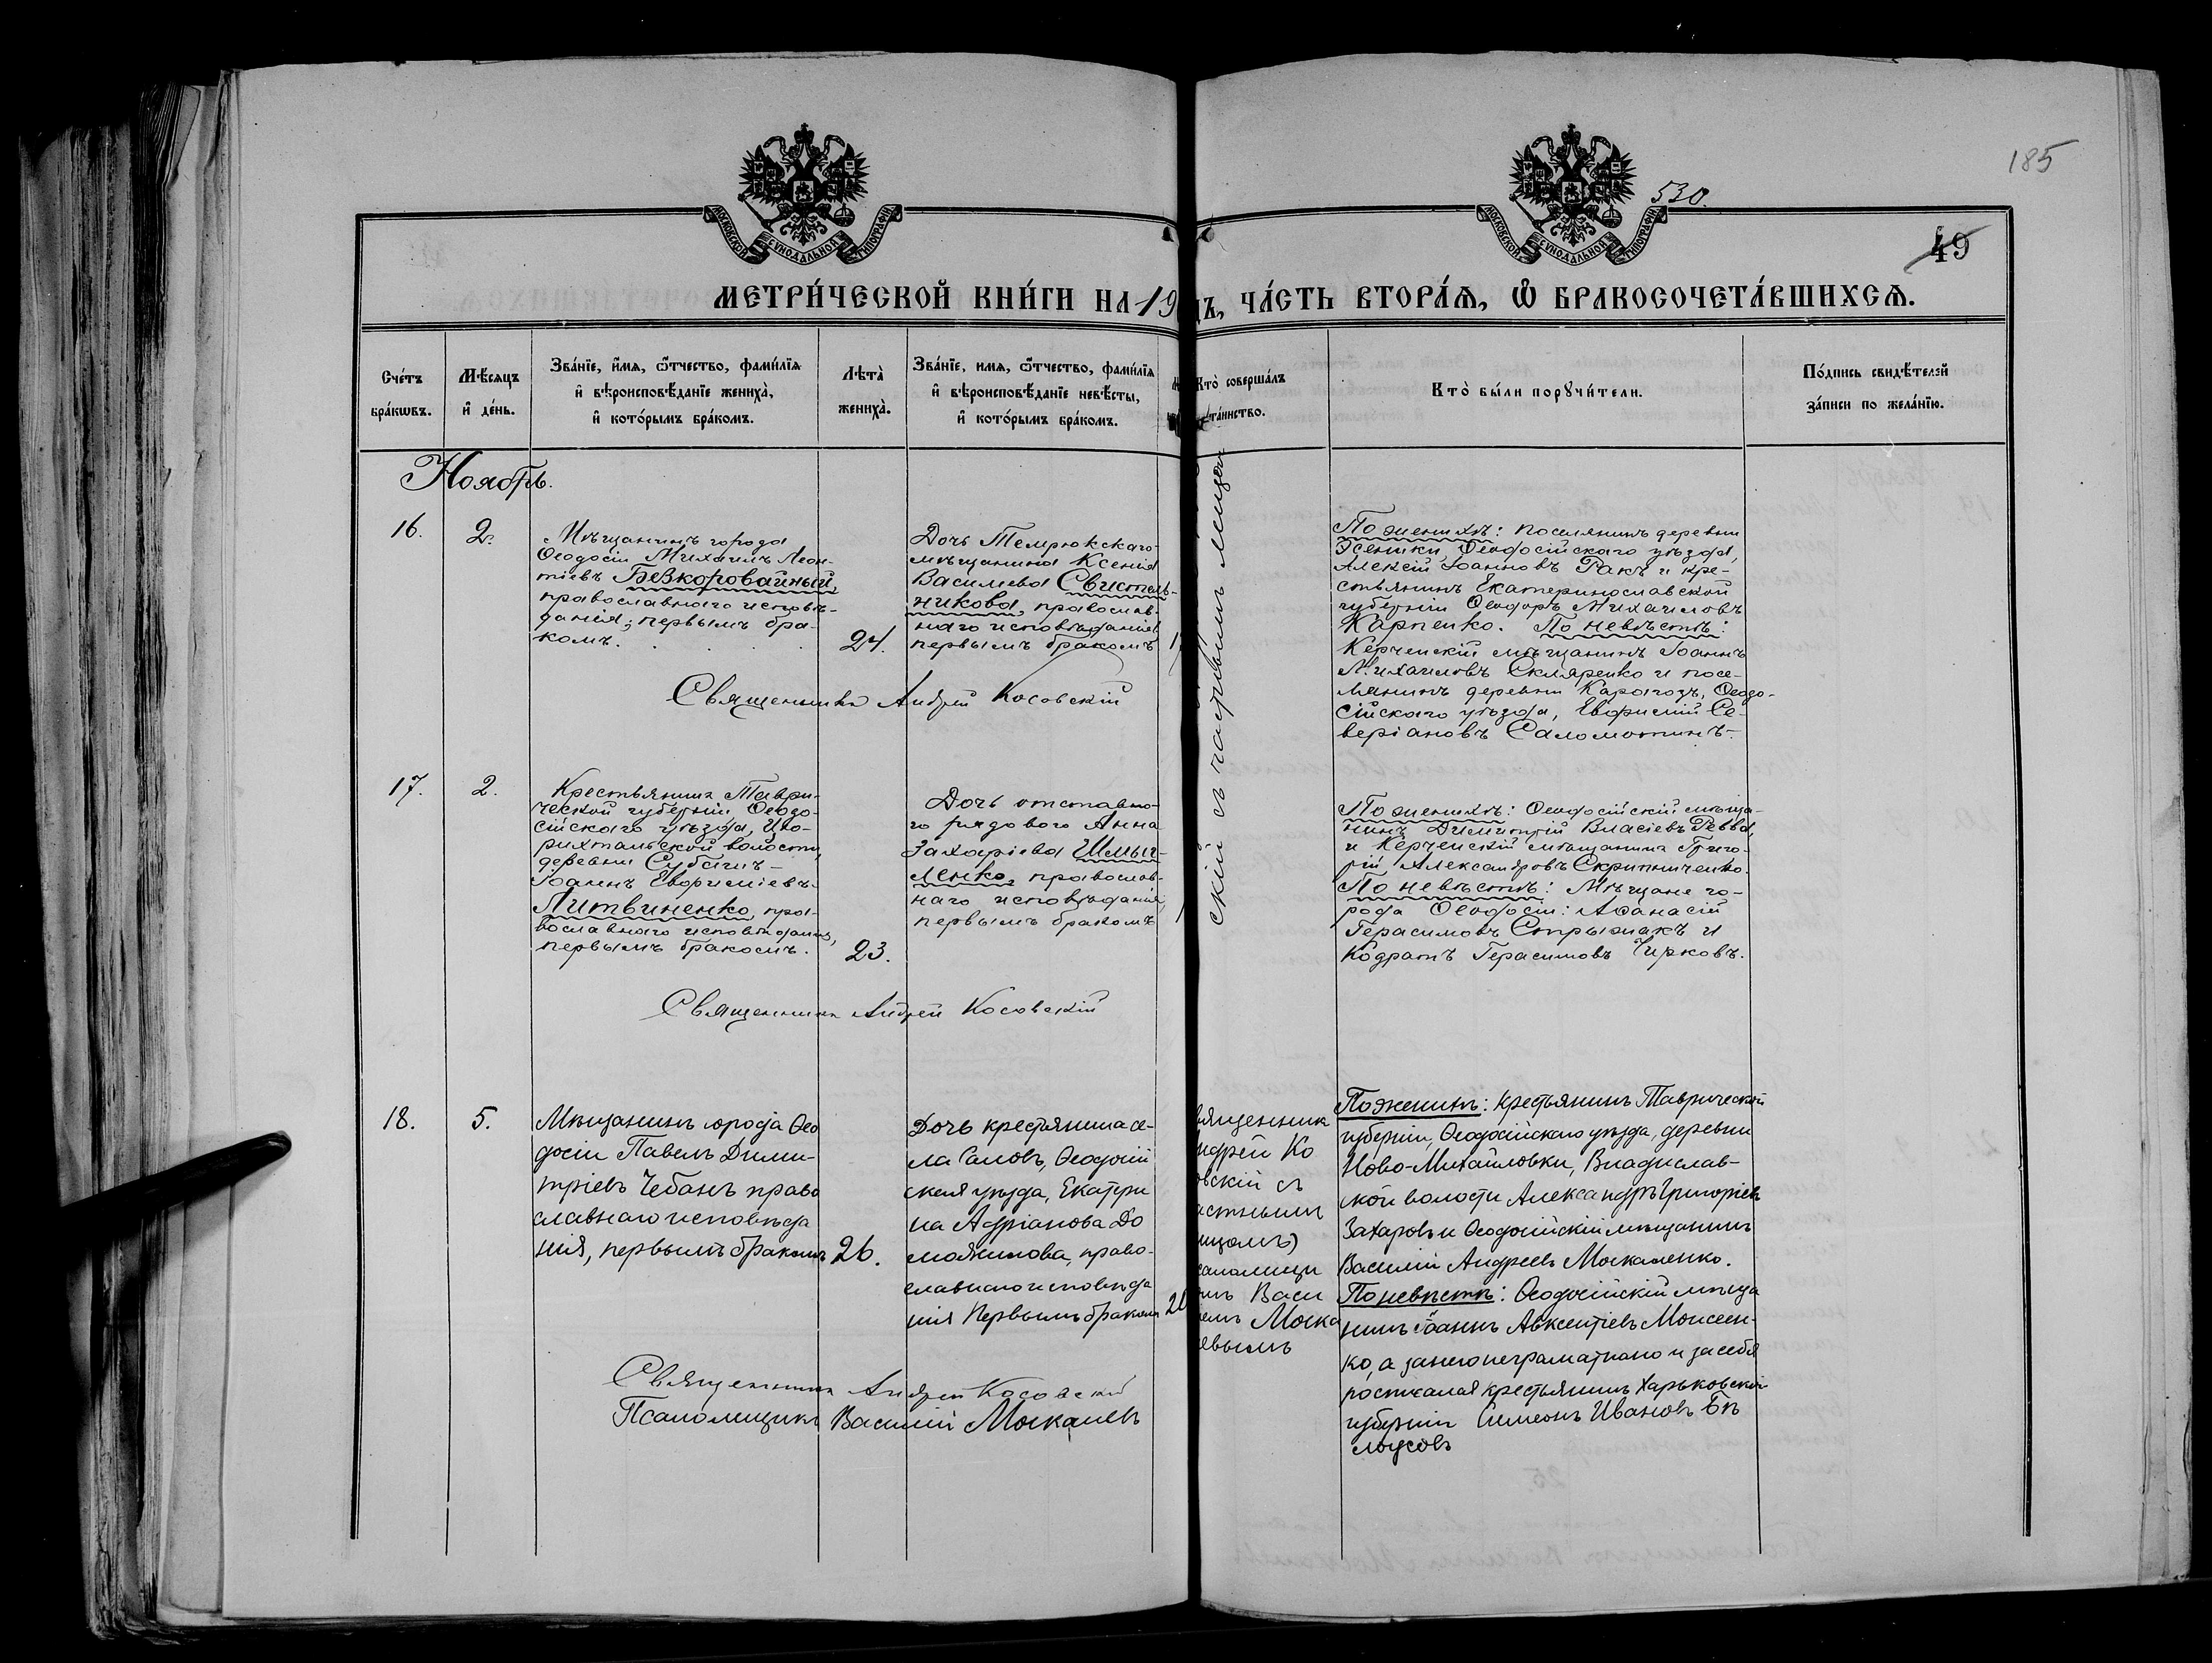 530.
185
49
МОСКОВСКОЙ СѴНОДАЛЬНОЙ ТИПОГРАФІИ
МОСКОВСКОЙ СѴНОДАЛЬНОЙ ТИПОГРАФІИ
МЕТРИ́ЧЕСКОЙ КНИ́ГИ НА 19
дъ, ЧА́СТЬ ВТОРА́Ѧ, Ѽ БРАКОСОЧЕТА́ВШИХСѦ.
Сче́тъ
бра́кѡвъ.
Мѣ́сяцъ
и҆ де́нь.
Зва́нїе, и҆́мя, ѻ҆́тчество, фами́лїя
и҆ вѣроисповѣ́данїе жениха̀,
и҆ кото́рымъ бра́комъ.
Лѣта̀
жениха̀.
Зва́нїе, имя, ѻ҆́тчество, фами́лїя
и҆ вѣроисповѣ́данїе невѣ́сты,
и҆ кото́рымъ бра́комъ.
Кто̀ соверша́лъ
та́инство.
Кто̀ бы́ли порꙋчи́тели.
По́дпись свидѣ́телей
за́писи по жела́нїю.
Ноябрь.
16.
2.
Мѣщанинъ города
Ѳеодосіи Михаилъ Леон-
тіевъ Безкоровайный,
православнаго исповѣ-
данія, первымъ бра-
комъ.
24.
Дочь Темрюкскаго
мѣщанина Ксенія
Василіева Свистель-
никова, православ-
наго исповѣданія
первымъ бракомъ
скій съ частнымъ лицом
По женихѣ: поселянинъ деревни
Эсеники, Ѳеодосійскаго уѣзда,
Алексій Іоанновъ Ракъ и кре-
стьянинъ Екатеринославской
губерніи Ѳеодоръ Михаиловъ
Карпенко. По невѣстѣ:
Керченскій мѣщанинъ Іоаннъ
Михаиловъ Скляренко и посе-
лянинъ деревни Карагозъ, Ѳеодо-
сійскаго уѣзда, Евфимій Се-
веріановъ Саломатинъ.
Священникъ Андрей Косовскій
17.
2.
Крестьянинъ Таври-
ческой губерніи Ѳеодо-
сійскаго уѣзда, Цю-
рихтальской волости,
деревни Субашъ-
Іоаннъ Евфиміевъ
Литвиненко, пра-
вославнаго исповѣданія,
первымъ бракомъ.
23.
Дочь отставно-
го рядового Анна
Захаріева Шмы-
ленко, православ-
наго исповѣданія,
первымъ бракомъ
По женихѣ: Ѳеодосійскій мѣща-
нинъ Димитрій Власіевъ Ревва,
и Керченскій мѣщанинъ Григо-
рій Александровъ Скрипниченко.
По невѣстѣ: Мѣщане го-
рода Ѳеодосіи: Аѳанасій
Герасимовъ Стрыжакъ и
Кодратъ Герасимовъ Чирковъ.
Священникъ Андрей Косовскій
18.
5.
Мѣщанинъ города Ѳео
досіи Павелъ Дими-
тріевъ Чебанъ право
славнаго исповѣда
нія, первымъ бракомъ
26.
Дочь крестьянина се-
ла Саловъ, Ѳеодосій
скаго уѣзда, Екатери
на Адріанова До
можилова, право-
славнаго исповѣда
нія Первымъ бракомъ
вященник
ндрей Ко
вскій съ
астнымъ
ицомъ)
саломщи
мъ Васи
емъ Моска
евымъ
По женихѣ: крестьянинъ Таврической
губерніи, Ѳеодосійскаго уѣзда, деревни
Ново-Михайловки, Владислав-
ской волости Александръ Григоріевъ
Захаровъ и Ѳеодосійскій мѣщанинъ
Василій Андреевъ Москаленко.
По невѣстѣ: Ѳеодосійскій мѣща
нинъ Іоаннъ Авксентіевъ Моисеен-
ко, а за него неграматнаго и за себя
росписался крестьянинъ Харьковской
губерніи Симеонъ Ивановъ Бѣ
лоусовъ
Священникъ Андрей Косовскій
Псаломщикъ Василій Москалевъ